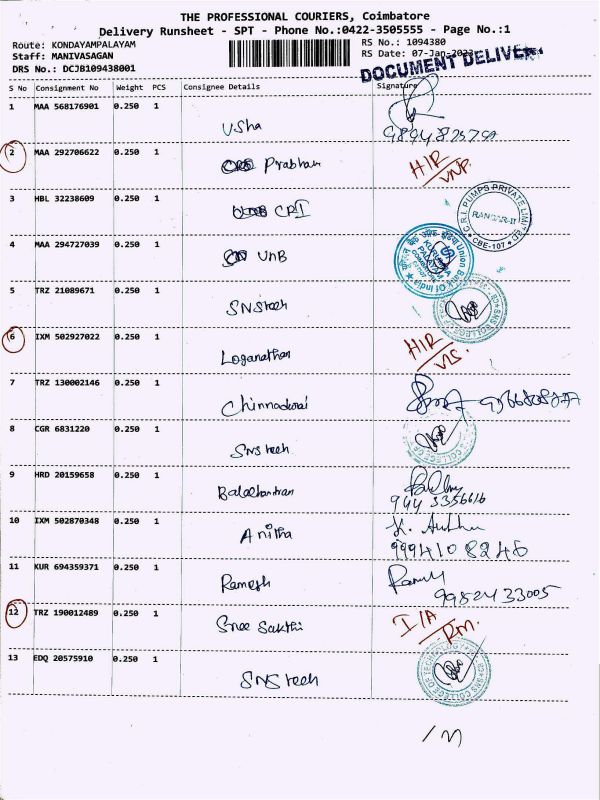 THE PROFESSIONAL COURIERS, Coimbatore
Delivery Runsheet - SPT - Phone No.:0422-3505555 - Page No.:1
Route: KONDAYAMPALAYAM
Staff: MANIVASAGAN
DRS No.: DCJB109438001
RS No.: 1094380
RS Date: 07-Jan-2023
DOCUMENT DELIVER
S No Consignment No Weight PCS Consignee Details Signature
1 MAA 568176901 0.250 1
Usha
2 MAA 292706622 0.250 1
Prabhan
HIR
3 HBL 32238609 0.250 1
CRI
C.R.I. PUMPS PRIVATE LIMITED
CBE-107
4 MAA 294727039 0.250 1
UNB
Union Bank Of India
5 TRZ 21089671 0.250 1
SNStech
6 IXM 502927022 0.250 1
Loganathan
HIR
7 TRZ 130002146 0.250 1
Chinnadurai
8 CGR 6831220 0.250 1
SNS tech
9 HRD 20159658 0.250 1
Balachandran
944 3356616
10 IXM 502870348 0.250 1
Anitha
999410 8246
11 KUR 694359371 0.250 1
Ramesh
99524 33005
12 TRZ 190012489 0.250 1
Sree Sakthi
I/A
RM.
13 EDQ 20575910 0.250 1
SNS tech
SNS COLLEGE OF TECHNOLOGY